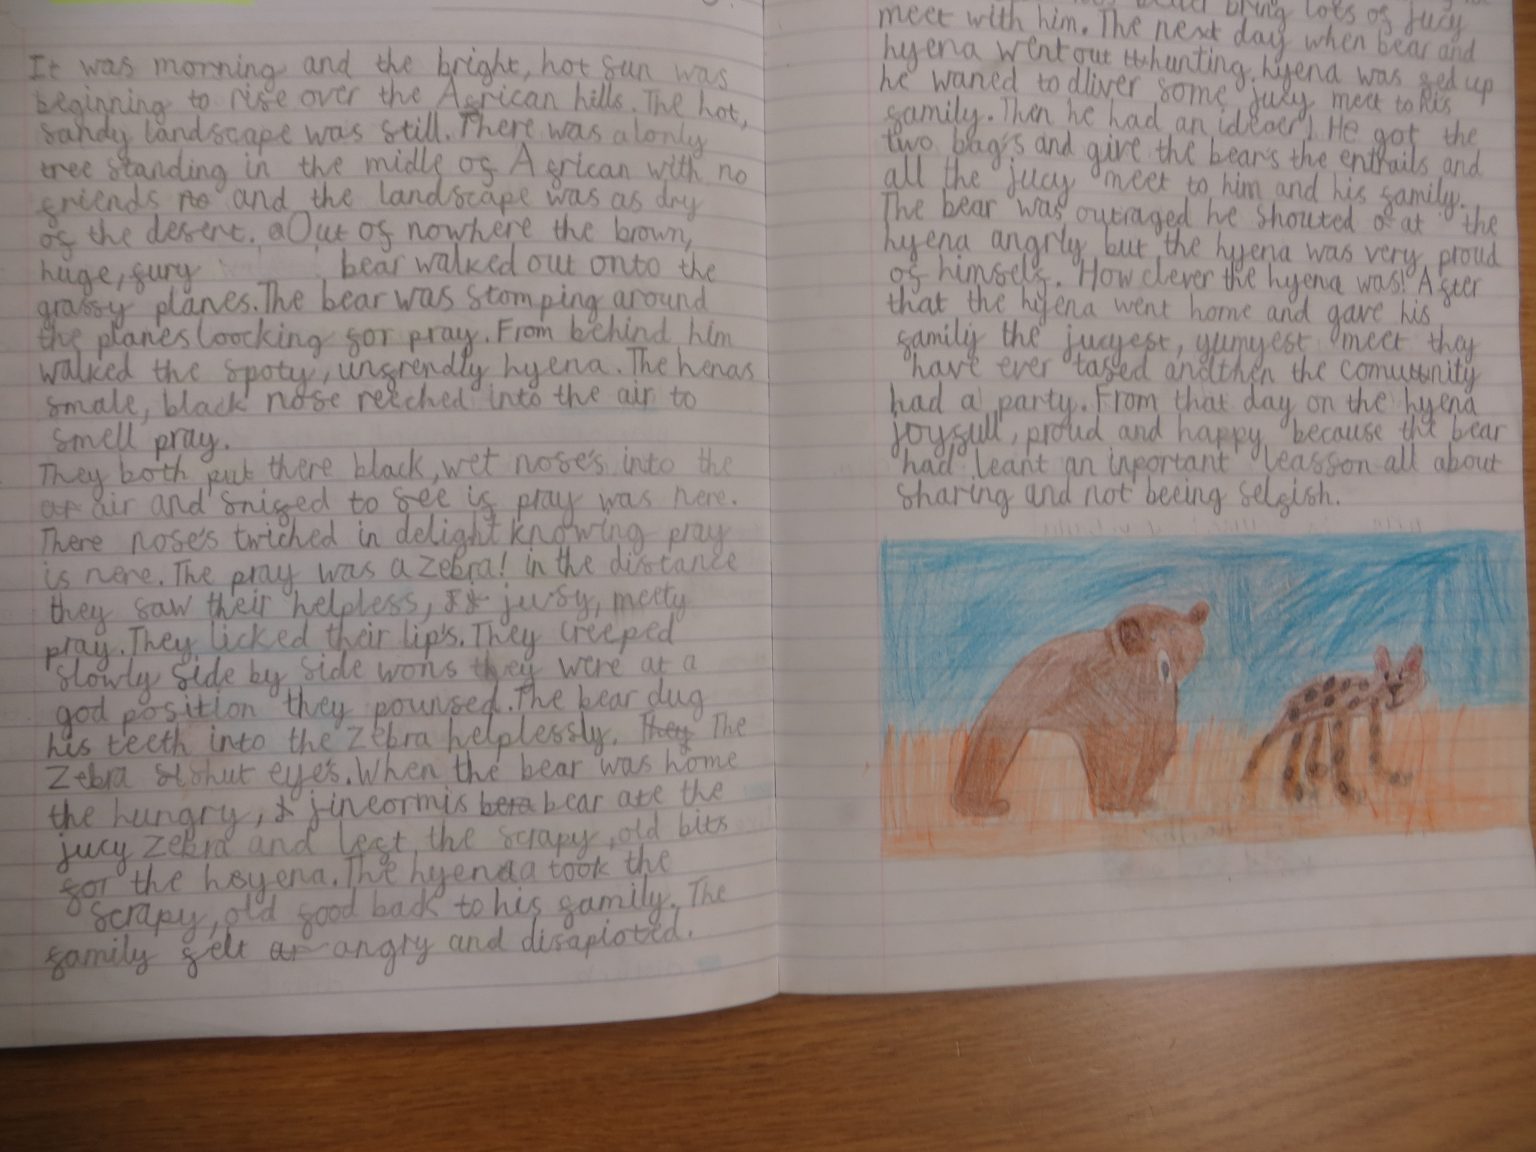 It was morning and the bright, hot sun was
beginning to rise over the African hills. The hot,
sandy landscape was still. There was a lonly
tree standing in the midle of African with no
friends no and the landscape was as dry
of the desert. Out of nowhere the brown,
huge, fury bear walked out onto the
grassy planes. The bear was stomping around
the planes loocking for pray. From behind him
walked the spoty, unfrendly hyena. The henas
smale, black nose reeched into the air to
smell pray.
They both put there black, wet nose's into the
ar air and snifed to see if pray was nere.
There nose's twiched in delight knowing pray
is nere. The pray was a zebra! in the distance
they saw their helpless, jusy, meety
pray. They licked their lip's. They creeped
slowly side by side wons they were at a
god position they pounsed. The bear dug
his teeth into the zebra helplessly. They The
zebra slshut eye's. When the bear was home
the hungry, jineormis bera bear ate the
jucy zebra and left the scrapy, old bits
for the hsyena. The hyenaa took the
scrapy, old food back to his family. The
family felt ar angry and disapioted.
bring lots of jucy
meet with him. The next day when bear and
hyena went out hunting. hyena was fed up
he waned to dliver some jucy meet to his
family. Then he had an idear). He got the
two bag's and give the bear's the entrails and
all the jucy meet to him and his family.
The bear was outraged he shouted at the
hyena angrly but the hyena was very proud
of himself. How clever the hyena was! After
that the hyena went home and gave his
family the jucyest, yumyest meet they
have ever tased and then the comuunity
had a party. From that day on the hyena
joyfull, proud and happy because the bear
had leant an inportant leasson all about
sharing and not beeing selfish.